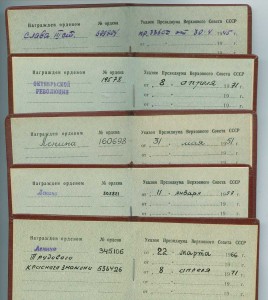 Награжден орденом № ордена Указом Президиума Верховного Совета СССР
Слава
19 г.
Награжден орденом № ордена Указом Президиума Верховного Совета СССР
ОКТЯБРЬСКОЙ РЕВОЛЮЦИИ 19578 8 апреля 1971 г.
19 г.
19 г.
Награжден орденом № ордена Указом Президиума Верховного Совета СССР
Ленина 160698 31 мая 1951 г.
19 г.
19 г.
Награжден орденом № ордена Указом Президиума Верховного Совета СССР
Ленина 11 января
19 г.
19 г.
Награжден орденом № ордена Указом Президиума Верховного Совета СССР
Ленина 345106 22 марта 1966 г.
Трудового
Красного Знамени 536426 8 апреля 1971 г.
19 г.